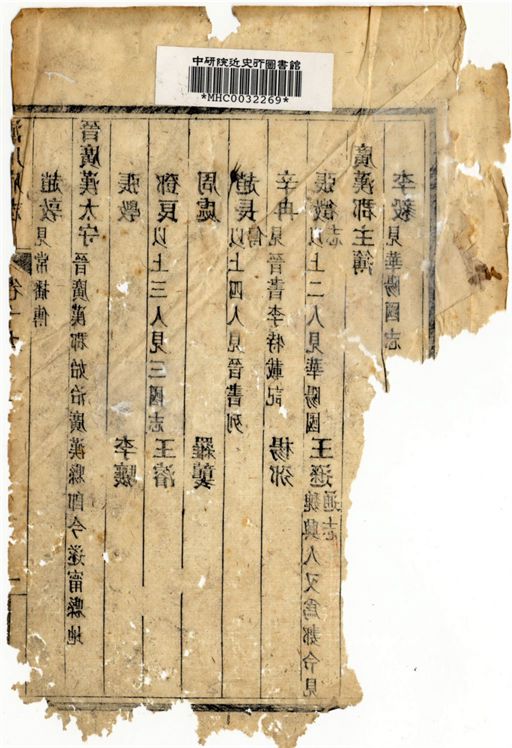 中研院近史所圖書館
*MHC0032269*
趙敦見常播傳
晉廣漢太守晉廣漢郡始治廣漢縣卽今遂甯縣地
張 李驤
鄧艮以上三人見三國志 王濬
周處 羅襲
趙長以上四人見晉書列傳
辛冉見晉書李特載記 楊邠
張徵以上二人見華陽國志 王遜魏興人又為 令見通志
廣漢郡主簿
李毅見華陽國志